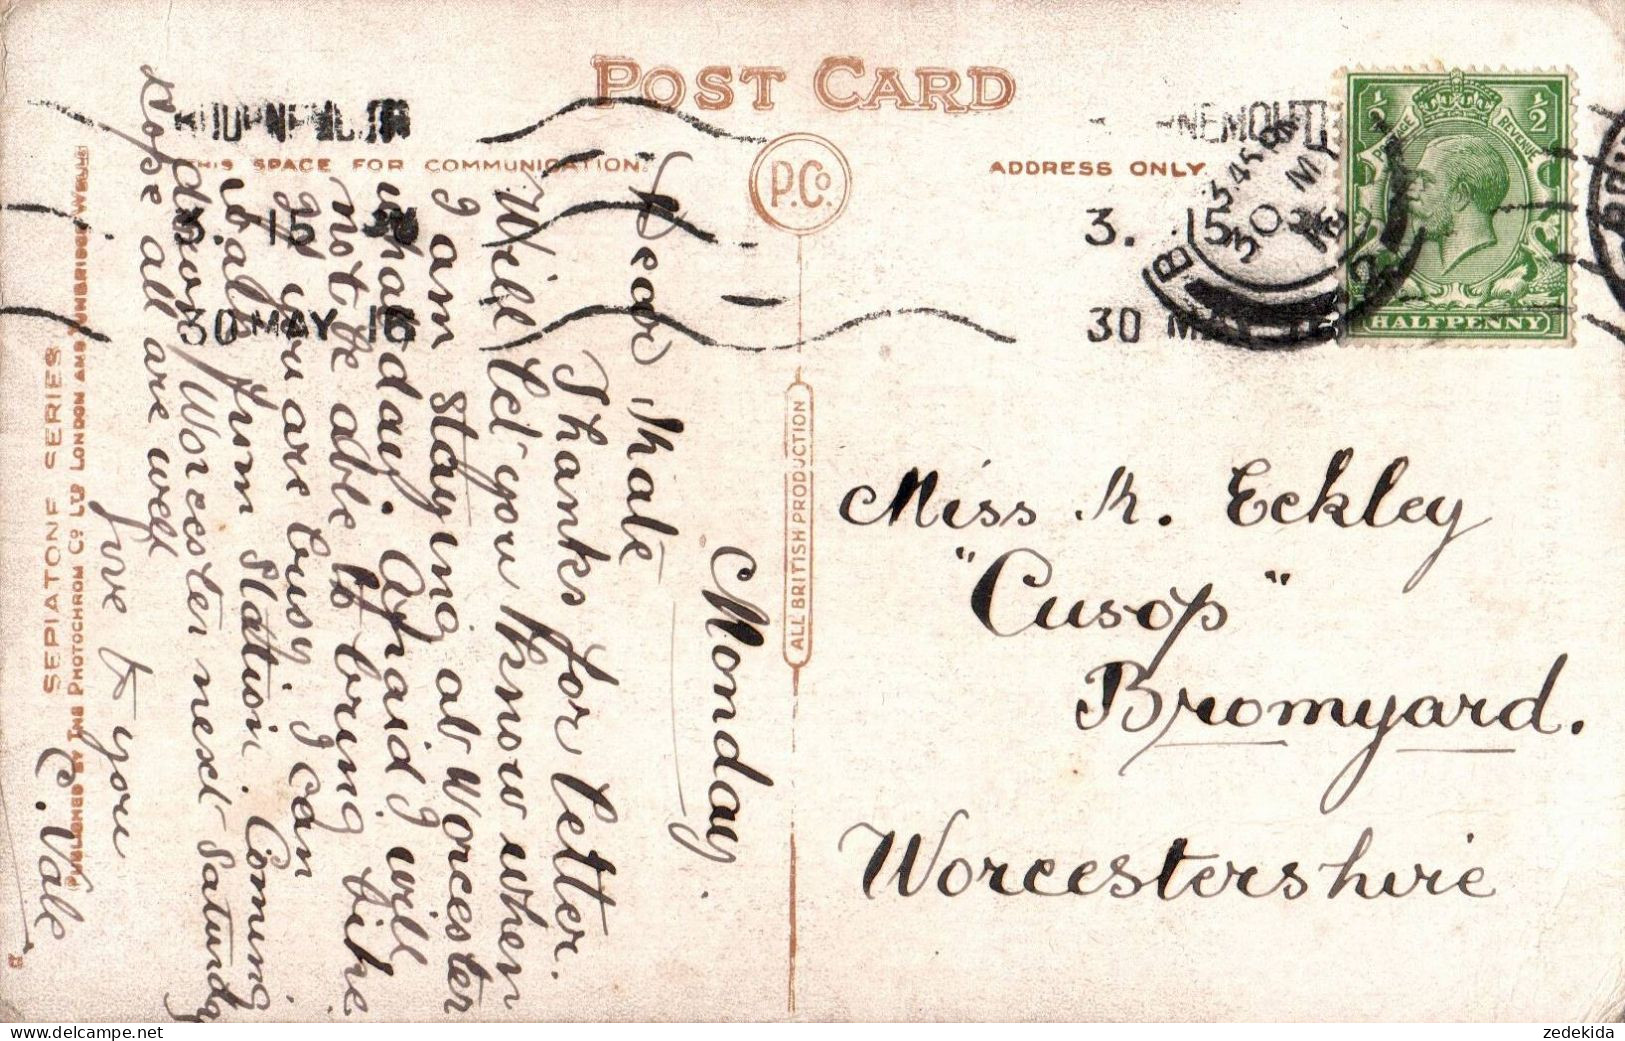 POST CARD
THIS SPACE FOR COMMUNICATION.
ADDRESS ONLY
P. Co.
ALL BRITISH PRODUCTION
SEPIATONE SERIES
PUBLISHED BY THE PHOTOCHROM Co LTD LONDON AND TUNBRIDGE WELLS
BOURNEMOUTH
3. 15
30 MAY 16
NEMOUTH
3. 15
30 MAY 16
3 45 PM
30 MY
16
½ ½
POSTAGE REVENUE
HALFPENNY
Monday.
Dear Kate
Thanks for letter.
Will let you know when
I am staying at Worcester
what day. Afraid I will
not be able to bring bike
if you are busy I can
walk from Station. Coming
down Worcester next Saturday
Hope all are well
Love to you
C. Vale
Miss K. Eckley
"Cusop"
Bromyard.
Worcestershire
zedekida